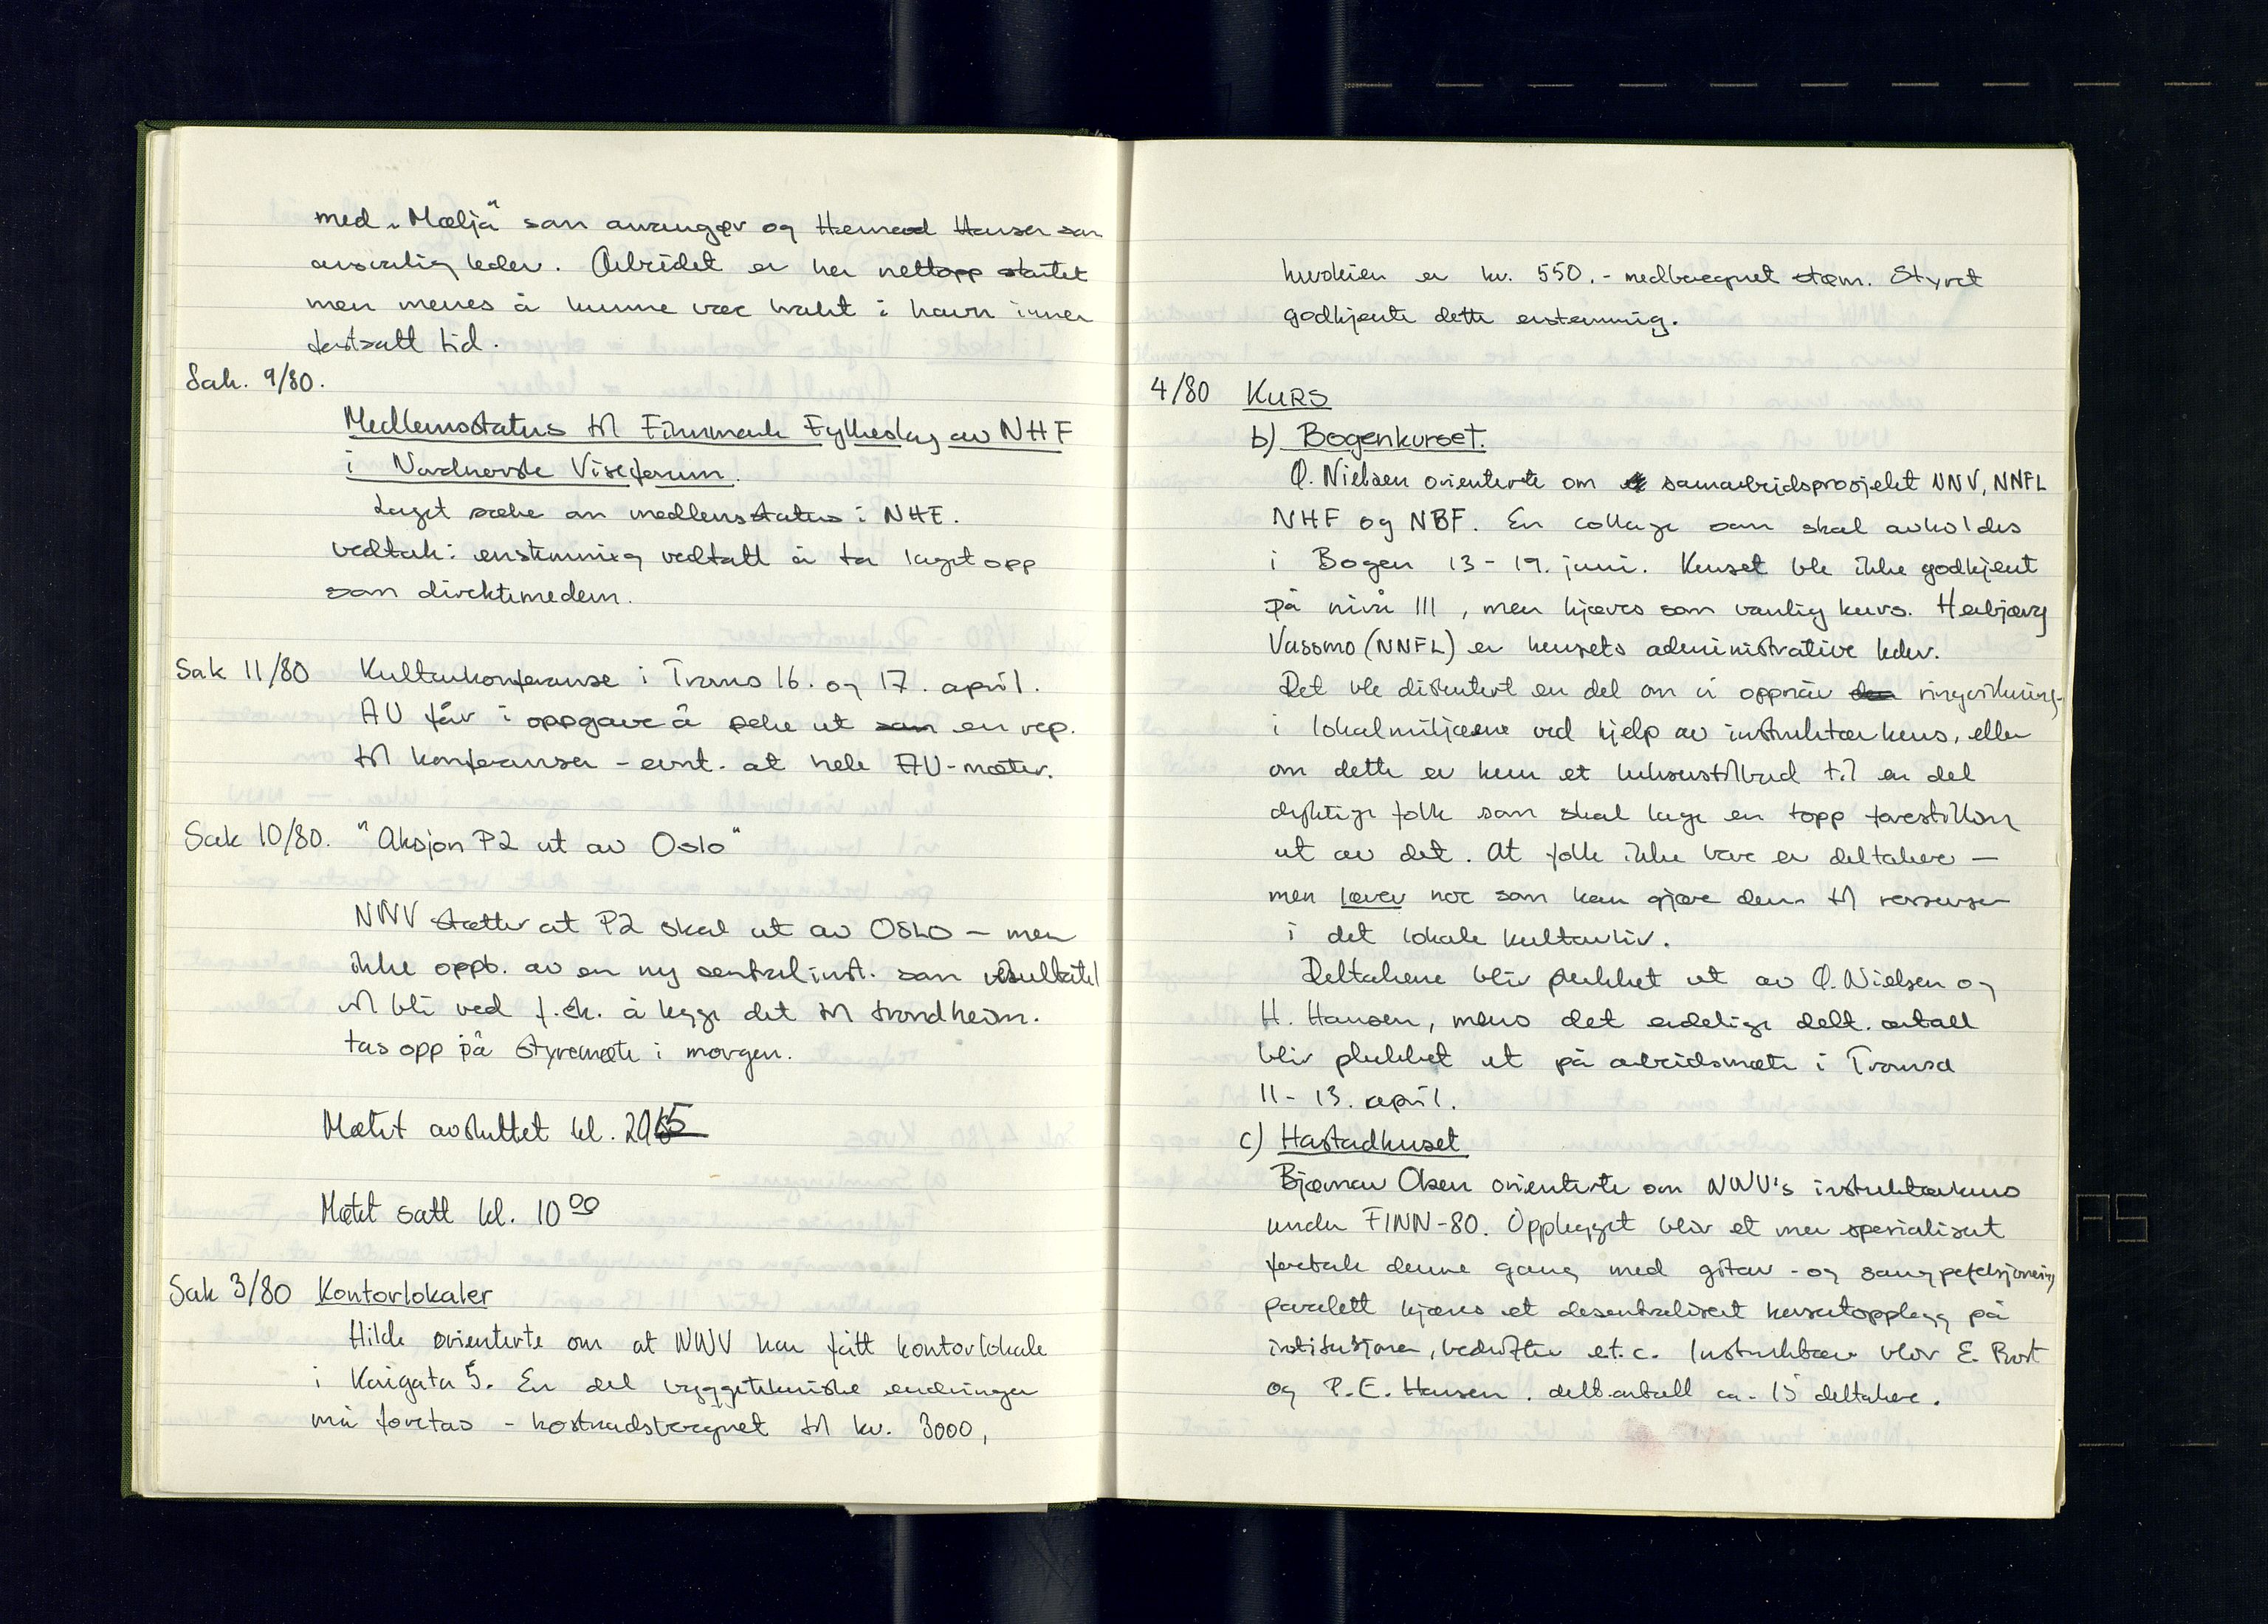 med "Mæljä" som arrangør og Harald Hansen som
ansvarlig leder. Arbeidet er her nettopp startet
men menes å kunne være brakt i havn innen
fastsatt tid.
Sak. 9/80.
Medlemsstatus til Finnmark Fylkeslag av NHF
i Nordnorsk Viseforum.
Laget søkte om medlemsstatus i NHF.
vedtak: enstemmig vedtatt å ta laget opp
som direktemedlem.
Sak 11/80 Kulturkonferanse i Tromsø 16. og 17. april.
AU får i oppgave å peke ut en rep.
til konferansen - evnt. at hele AU-møter.
Sak 10/80. "Aksjon P2 ut av Oslo"
NNV støtter at P2 skal ut av OSLO - men
ikke oppb. av en ny sentralinst. som resultatet
vil bli ved f.ek. å legge det til Trondheim.
tas opp på styremøte i morgen.
Møtet avsluttet kl. 2015
Møtet satt kl. 10 00
Sak 3/80 Kontorlokaler
Hilde orienterte om at NNV har fått kontorlokale
i Kaigata 5. En del byggetekniske endringer
må foretas - kostnadsberegnet til kr. 3000,
husleien er kr. 550.- medberegnet strøm. Styret
godkjente dette enstemmig.
4/80 KURS
b) Bogenkurset.
Ø. Nielsen orienterte om samarbeidsprosjekt NNV, NNFL
NHF og NBF. En collage som skal avholdes
i Bogen 13 - 19. juni. Kurset ble ikke godkjent
på nivå III, men kjøres som vanlig kurs. Herbjørg
Vassmo (NNFL) er kursets administrative leder.
Det ble diskutert en del om vi oppnår ringvirkning
i lokalmiljøene ved hjelp av instruktørkurs, eller
om dette er kun et luksustilbud til en del
dyktige folk som skal lage en topp forestilling
ut av det. At folk ikke bare er deltakere -
men lærer noe som kan gjøre dem til ressurser
i det lokale kulturliv.
Deltakerne blir plukket ut av Ø. Nielsen og
H. Hansen, mens det endelige delt. antall
blir plukket ut på arbeidsmøte i Tromsø
11 - 13. april.
c) Harstadkurset
Bjørnar Olsen orienterte om NNV's instruktørkurs
under FINN-80. Opplegget blir et mer spesialisert
foretak denne gang med gitar - og sangpefeksjonering
paralelt kjøres et desentralisert kursopplegg på
institusjoner, bedrifter et.c. Instruktører blir E. Rost
og P.E. Hansen. delt.antall ca. 15 deltakere.